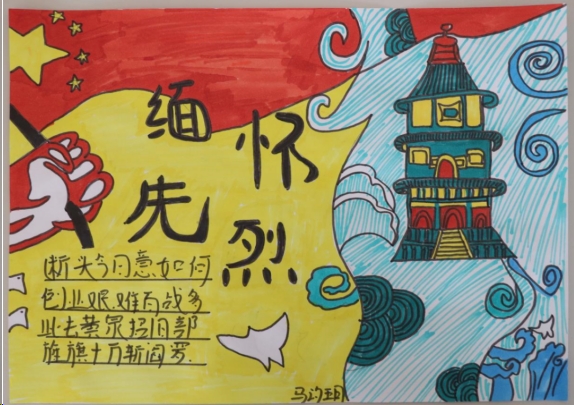 缅怀
先烈
断头今日意如何
创业艰难百战多
此去黄泉招旧部
旌旗十万斩阎罗.